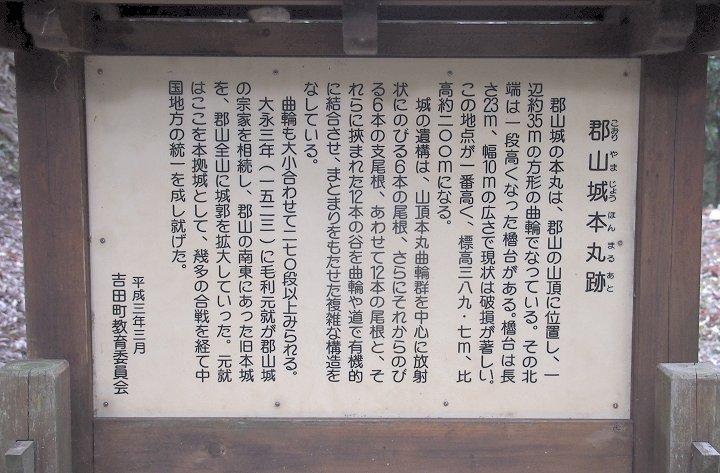 郡山城本丸跡
こおりやまじょうほんまるあと
郡山城の本丸は、郡山の山頂に位置し、一
辺約35mの方形の曲輪でなっている。その北
端は一段高くなった櫓台がある。櫓台は長
さ23m、幅10mの広さで現状は破損が著しい。
この地点が一番高く、標高三八九・七m、比
高約二〇〇mになる。
城の遺構は、山頂本丸曲輪群を中心に放射
状にのびる6本の尾根、さらにそれからのび
る6本の支尾根、あわせて12本の尾根と、そ
れらに挾まれた12本の谷を曲輪や道で有機的
に結合させ、まとまりをもたせた複雑な構造を
なしている。
曲輪も大小合わせて二七〇段以上みられる。
大永三年(一五二三)に毛利元就が郡山城
の宗家を相続し、郡山の南東にあった旧本城
を、郡山全山に城郭を拡大していった。元就
はここを本拠城として、幾多の合戦を経て中
国地方の統一を成し就げた。
平成三年三月
吉田町教育委員会